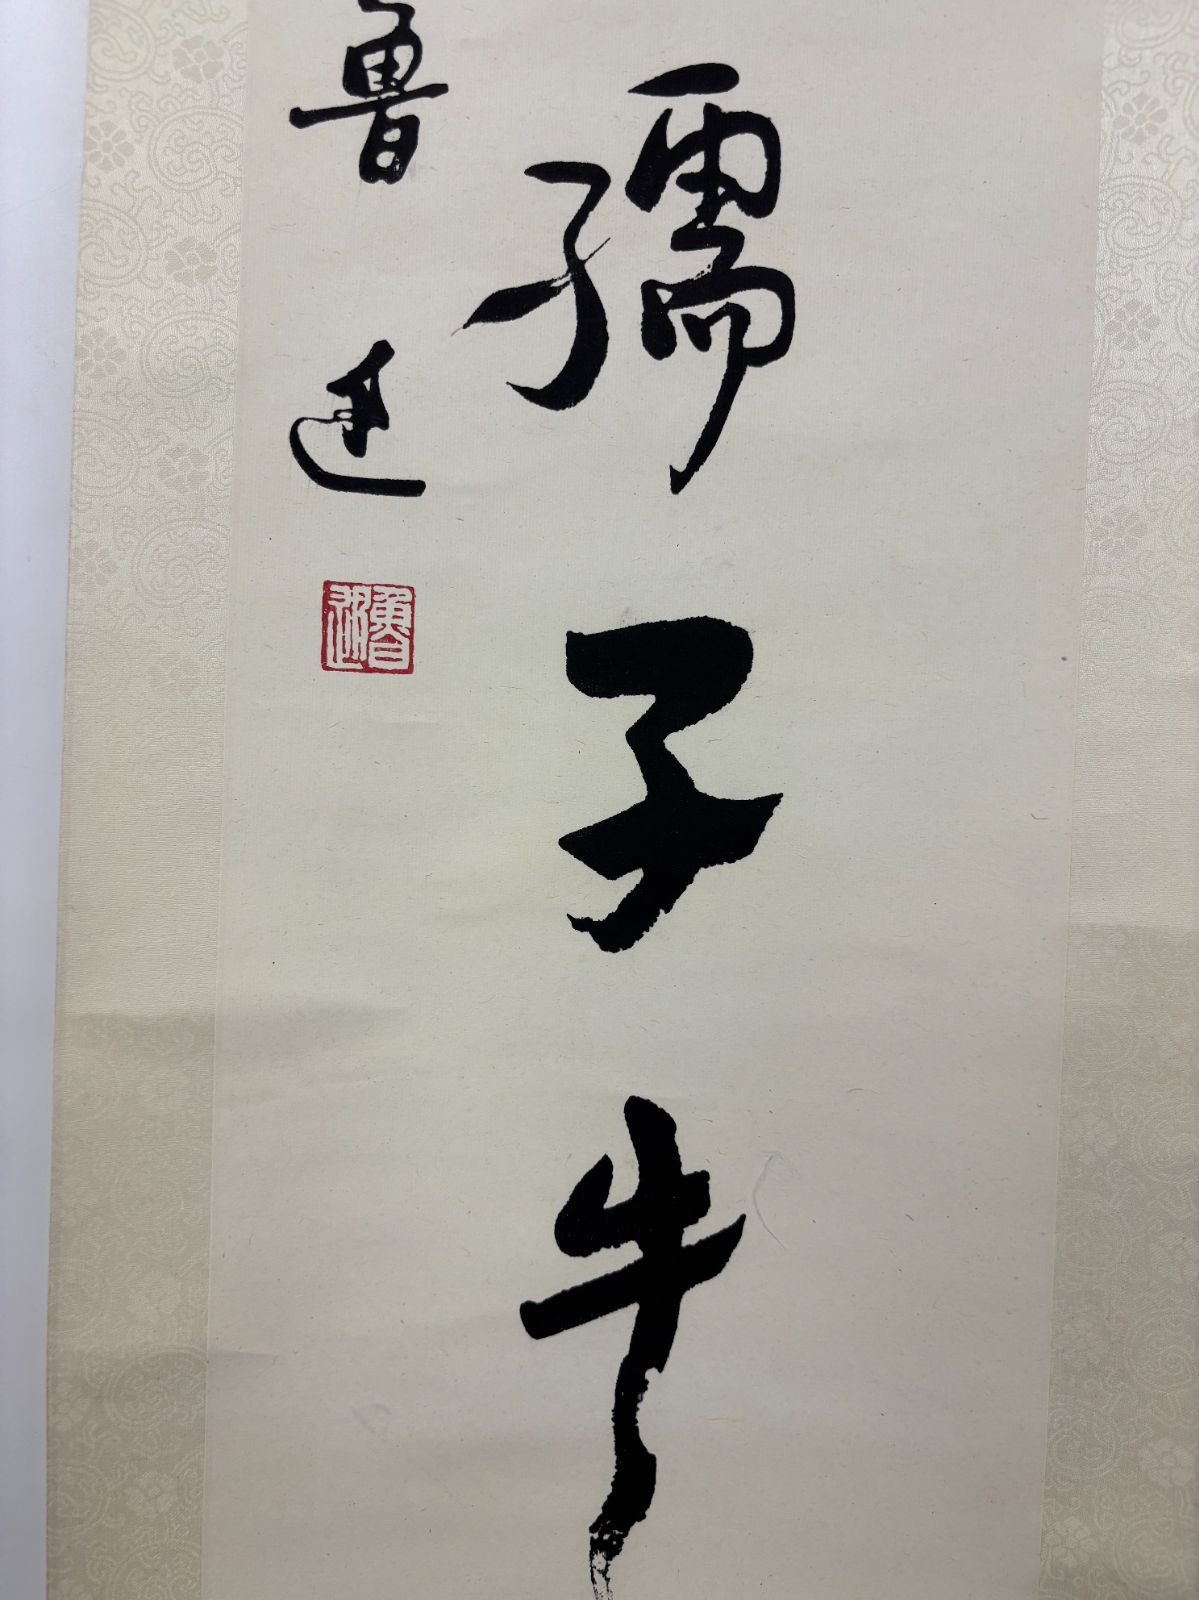 孺子牛
魯迅
魯迅